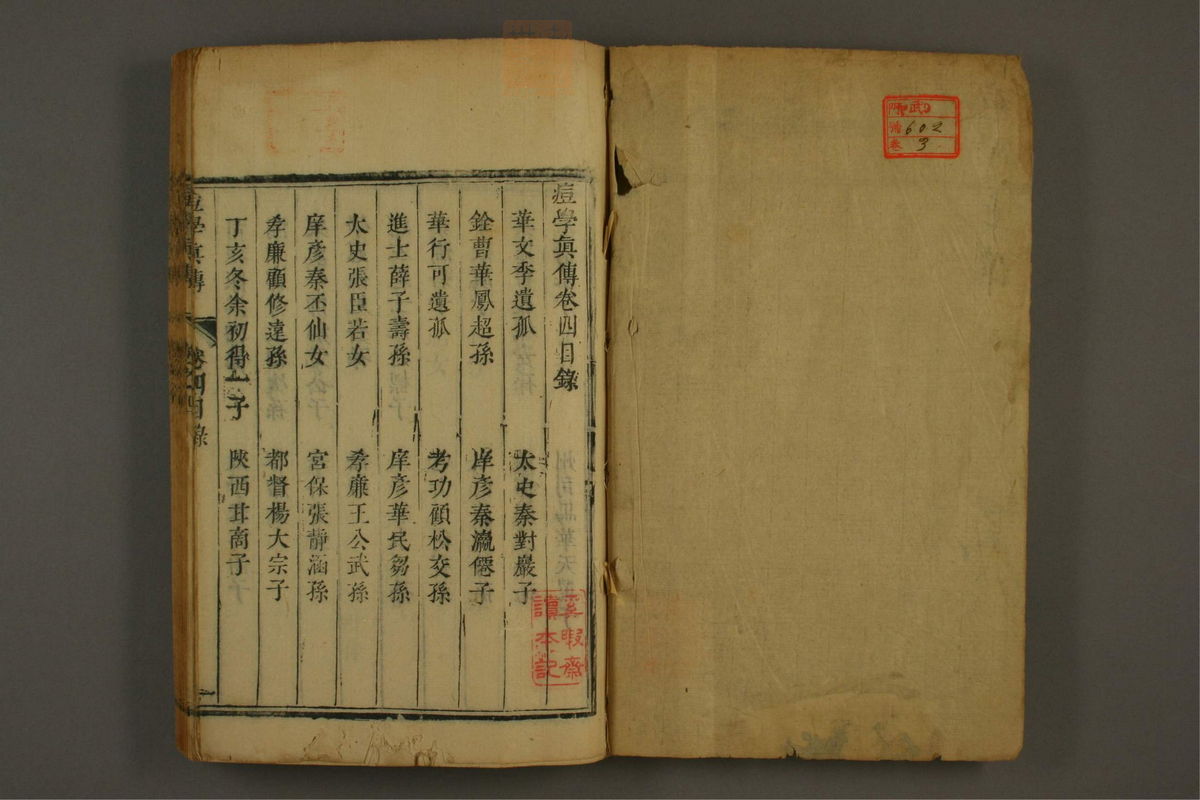 痘學眞傳卷四目錄
華文季遺孤　太史秦對巖子
銓曹華鳳超孫　庠彥秦瀛僊子
華行可遺孤　考功顧松交孫
進士薛子壽孫　庠彥華民芻孫
太史張臣若女　孝廉王公武孫
庠彥秦丕仙女　宮保張靜涵孫
孝廉顧修遠孫　都督楊大宗子
丁亥冬余初得一子　陝西甘啇子
痘學眞傳　卷四目錄
奚暇齋
讀本記
602
3